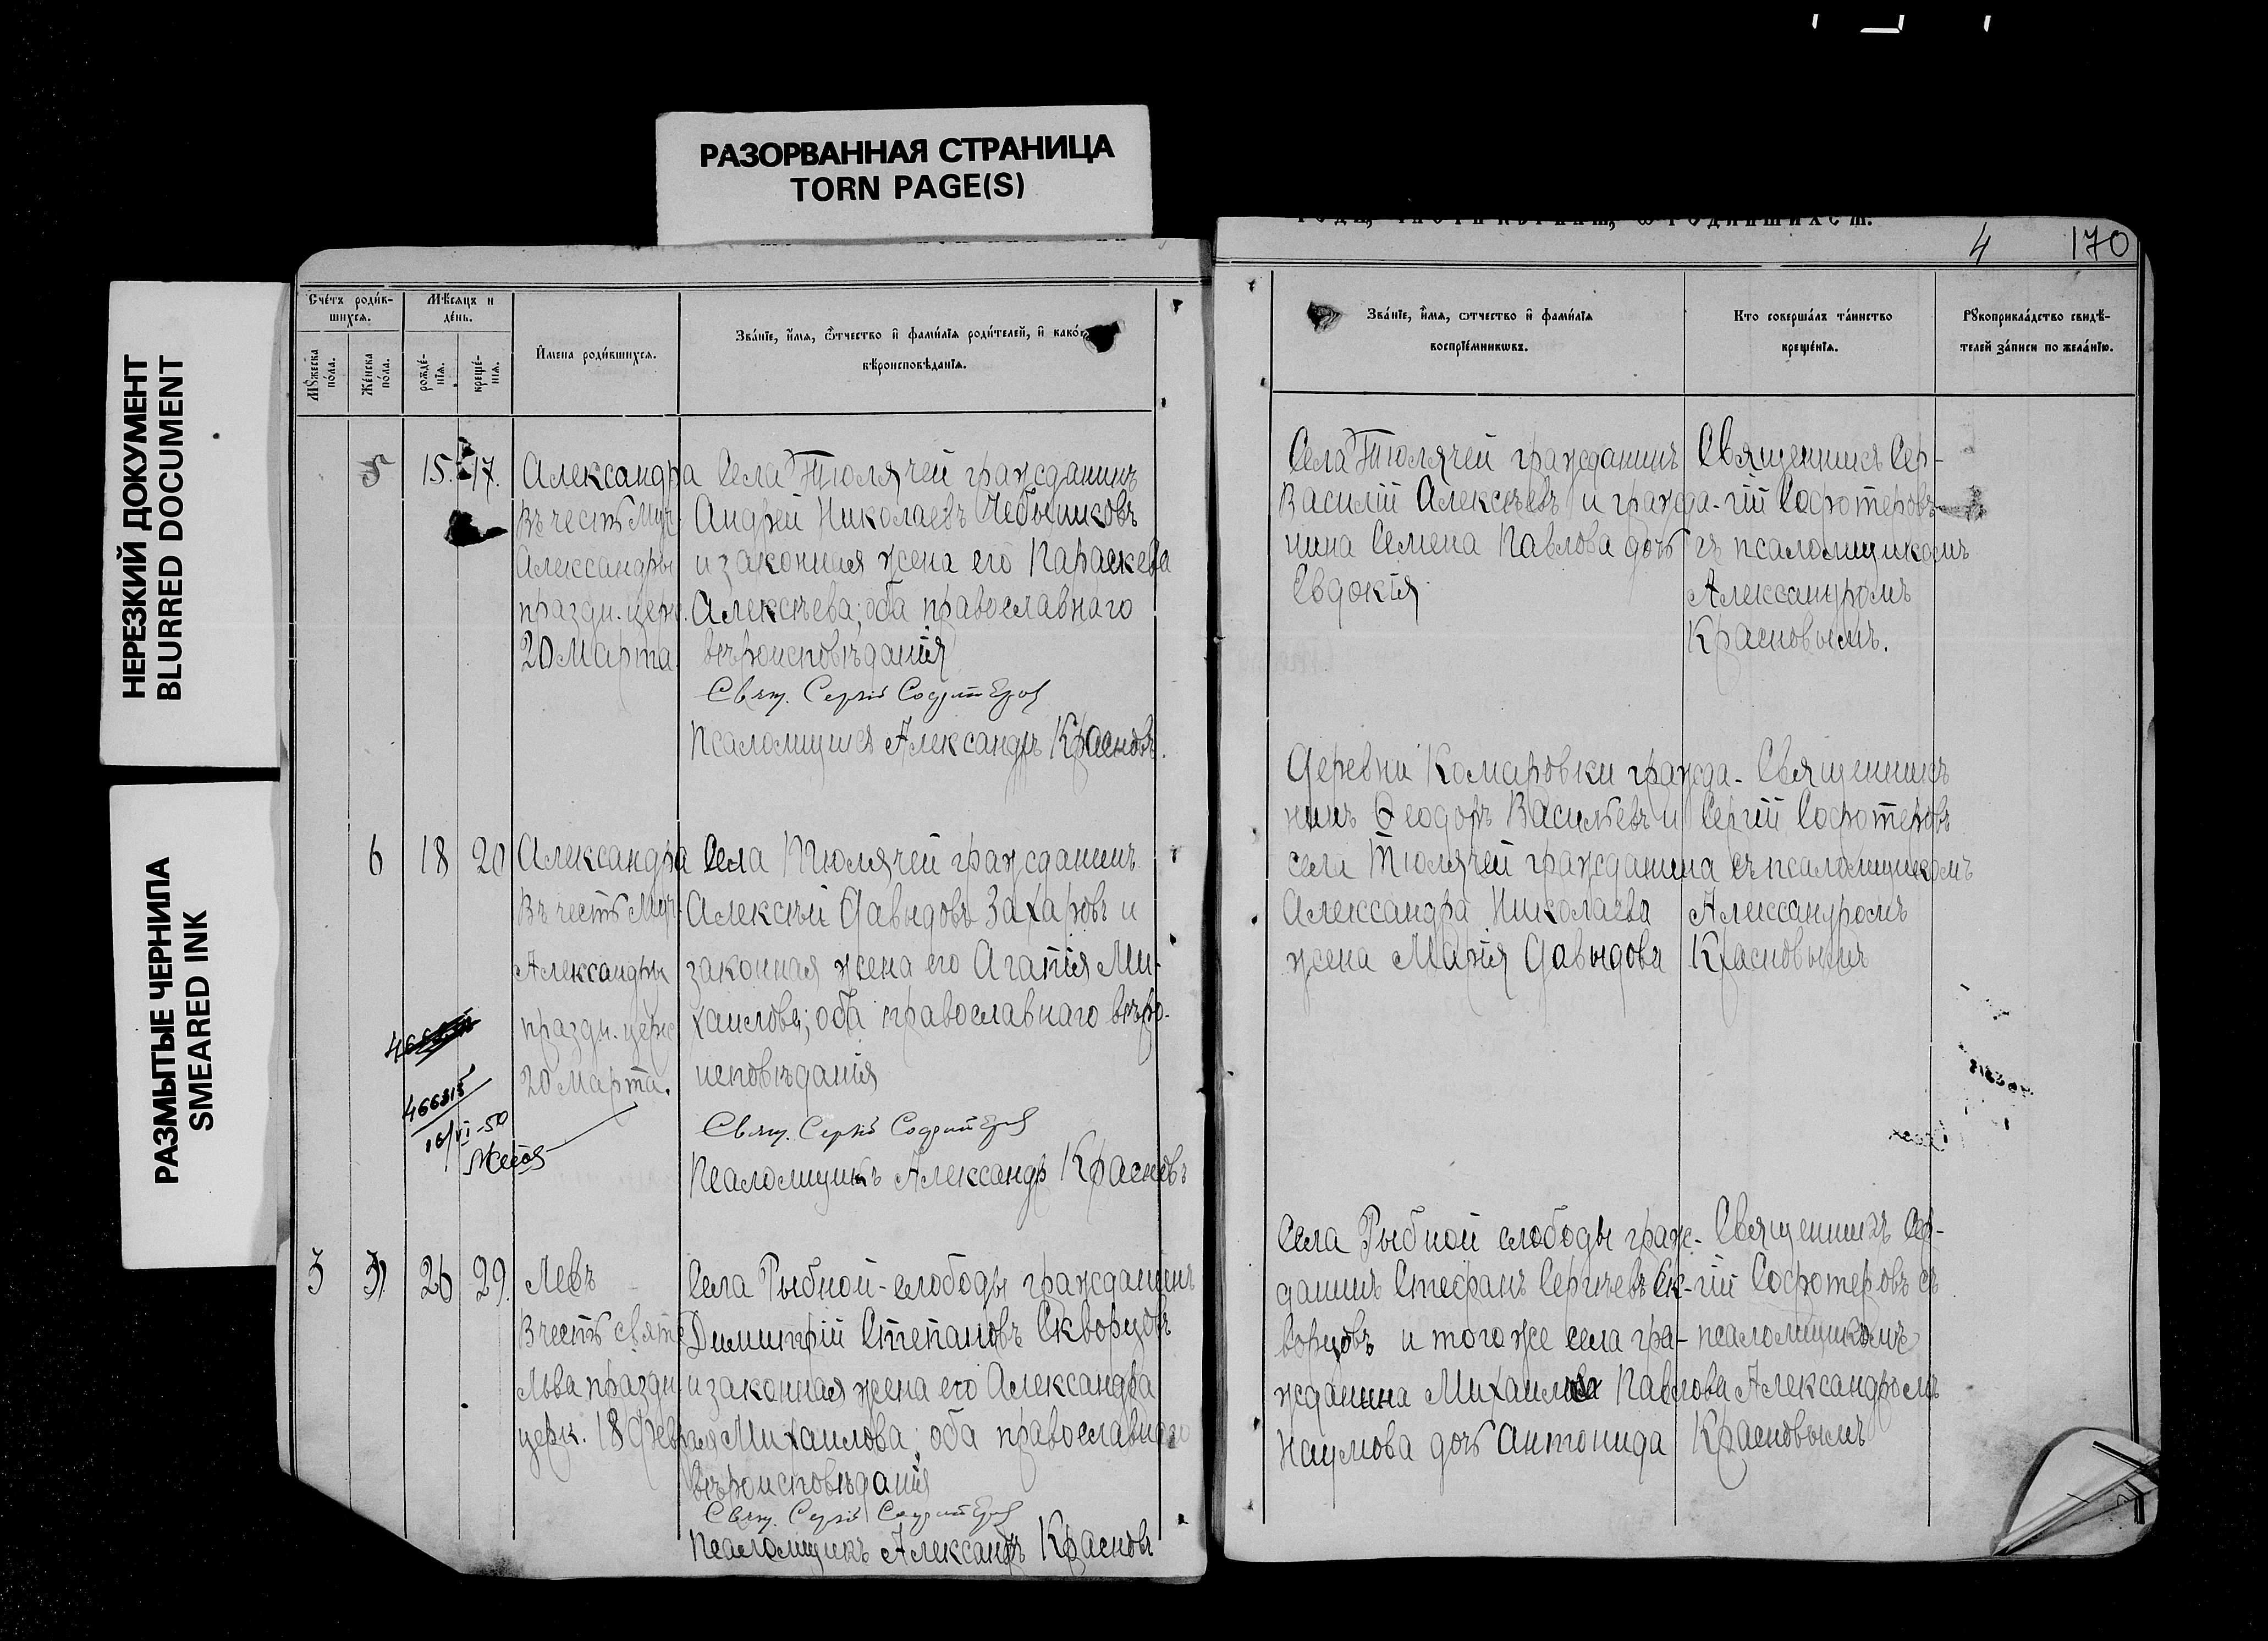 РАЗОРВАННАЯ СТРАНИЦА
TORN PAGE(S)
НЕРЕЗКИЙ ДОКУМЕНТ
BLURRED DOCUMENT
РАЗМЫТЫЕ ЧЕРНИЛА
SMEARED INK
Счéтъ роди́в-
шихся.
Мѣсяцъ и
дéнь.
Мꙋ́жеска
пóла.
Жéнска
пóла.
рождé-
нїя.
крещé-
нїя.
И҆мена роди́вшихся.
Звáнїе, и҆́мя, ѻ҆́тчество и҆ фами́лїя роди́телей, и҆ какóгѡ
вѣроисповѣданїя.
5
15.
17.
Александра
Въ честь Муч.
Александры
праздн. церк.
20 Марта.
Села Тюлячей гражданинъ
Андрей Николаевъ
и законная жена его Параскева
Алексѣева; оба православнаго
вѣроисповѣданія
Свящ. Сергій Софотеровъ
Псаломщикъ Александръ Красновъ.
6
18
20
Александра
Въ честь Муч.
Александры
праздн. церк
20 Марта.
Села Тюлячей гражданинъ
Алексѣй Давыдовъ Захаровъ и
законная жена его Агапія Ми-
хаилова; оба православнаго вѣро-
исповѣданія
Свящ. Сергій Софотеровъ
Псаломщикъ Александръ Красновъ
466315
16/VI-50
3
26
29.
Левъ
В честь свят.
Льва праздн.
церк. 18 Февраля
Села Рыбной-слободы гражданинъ
Димитрій Степановъ Скворцовъ
и законная жена его Александра
Михаилова; оба православнаго
вѣроисповѣданія
Свящ. Сергій Софотеровъ
Псаломщикъ Александръ Красновъ
4
170
Звáнїе, и҆́мя, ѻ҆тчество и҆ фами́лїя
воспрїéмникѡвъ.
Кто совершáлъ тáинство
крещéнїя.
Рꙋкоприклáдство свидѣ́-
телей зáписи по желáнїю.
Села Тюлячей гражданинъ
Василій Алексѣевъ и гражда-
нина Семена Павлова дочь
Евдокія
Священникъ Сер-
гій Софотеровъ
съ псаломщикомъ
Александромъ
Красновымъ.
Деревни Комаровки гражда-
нинъ Ѳеодоръ Васильевъ и
села Тюлячей гражданина
Александра Николаева
жена Марія Давыдова
Священникъ
Сергій Софотеровъ
съ псаломщикомъ
Александромъ
Красновымъ
Села Рыбной слободы граж-
данинъ Стефанъ Сергѣевъ Ск-
ворцовъ и того же села гра-
жданина Михаила Павлова
Наумова дочь Антонида
Священникъ Сер-
гій Софотеровъ съ
псаломщикомъ
Александромъ
Красновымъ